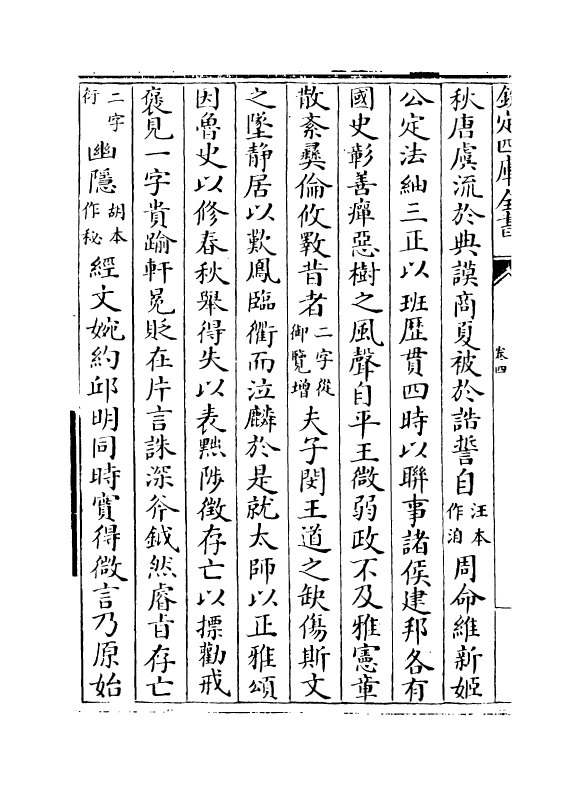 欽定四庫全書
卷四
秋唐虞流於典謨商夏被於誥誓自汪本作洎周命維新姬
公定法紬三正以班歴貫四時以聨事諸侯建邦各有
國史彰善癉惡樹之風聲自平王微弱政不及雅憲章
散紊彞倫攸斁昔者二字從御覽增夫子閔王道之缺傷斯文
之墜静居以歎鳳臨衢而泣麟於是就太師以正雅頌
因魯史以修春秋舉得失以表黜陟徴存亡以摽勸戒
褒見一字貴踰軒冕貶在片言誅深斧鉞然睿㫖存亡
二字衍幽隱胡本作秘經文婉約邱明同時實得微言乃原始